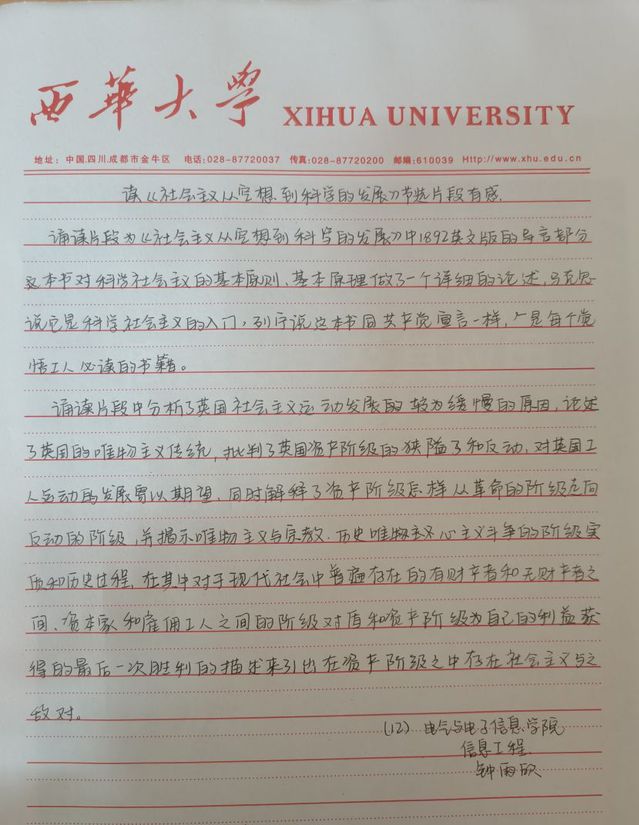 西華大學 XIHUA UNIVERSITY
地址：中国.四川.成都市金牛区 电话:028-87720037 传真:028-87720200 邮编:610039 Http://www.xhu.edu.cn
读《社会主义从空想到科学的发展》节选片段有感.
诵读片段为《社会主义从空想到科学的发展》中1892英文版的导言部分
这本书对科学社会主义的基本原则、基本原理做了一个详细的论述,马克思
说它是科学社会主义的入门,列宁说这本书同共产党宣言一样,是每个觉
悟工人必读的书籍。
诵读片段中分析了英国社会主义运动发展的较为缓慢的原因,论述
了英国的唯物主义传统,批判了英国资产阶级的狭隘了和反动,对英国工
人运动的发展寄以期望,同时解释了资产阶级怎样从革命的阶级走向
反动的阶级,并揭示唯物主义与宗教.历史唯物主义心主义斗争的阶级实
质和历史过程,在其中对于现代社会中普遍存在的有财产者和无财产者之
间、资本家和雇佣工人之间的阶级对盾和资产阶级为自己的利益获
得的最后一次胜利的描述来引出在资产阶级之中存在社会主义与之
敌对。
(12) 电气与电子信息学院
信息工程
钟雨欣